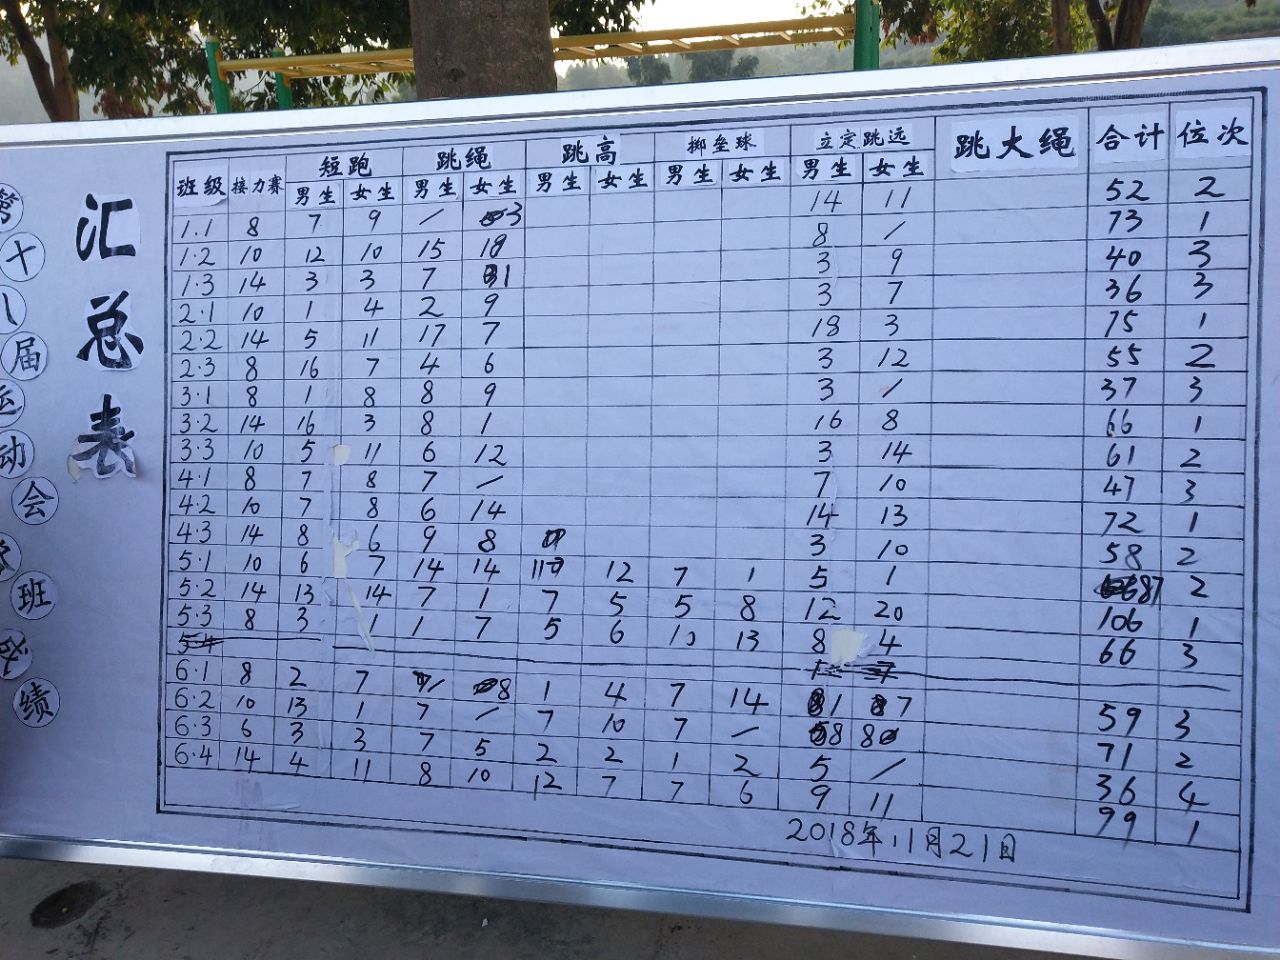 十八届运动会各班成绩
汇总表
班级 接力赛 短跑 跳绳 跳高 掷垒球 立定跳远 跳大绳 合计 位次
男生 女生 男生 女生 男生 女生 男生 女生 男生 女生
1.1 8 7 9 / 3 14 11 52 2
1.2 10 12 10 15 18 8 / 73 1
1.3 14 3 3 7 1 3 9 40 3
2.1 10 1 4 2 9 3 7 36 3
2.2 14 5 11 17 7 18 3 75 1
2.3 8 16 7 4 6 3 12 55 2
3.1 8 1 8 8 9 3 / 37 3
3.2 14 16 3 8 1 16 8 66 1
3.3 10 5 11 6 12 3 14 61 2
4.1 8 7 8 7 / 7 10 47 3
4.2 10 7 8 6 14 14 13 72 1
4.3 14 8 6 9 8 3 10 58 2
5.1 10 6 7 14 14 11 12 7 1 5 1 87 2
5.2 14 13 14 7 1 7 5 5 8 12 20 106 1
5.3 8 3 1 1 7 5 6 10 13 8 4 66 3
6.1 8 2 7 / 8 1 4 7 14 1 7 59 3
6.2 10 13 1 7 / 7 10 7 / 8 8 71 2
6.3 6 3 3 7 5 2 2 1 2 5 / 36 4
6.4 14 4 11 8 10 12 7 7 6 9 11 99 1
2018年11月21日